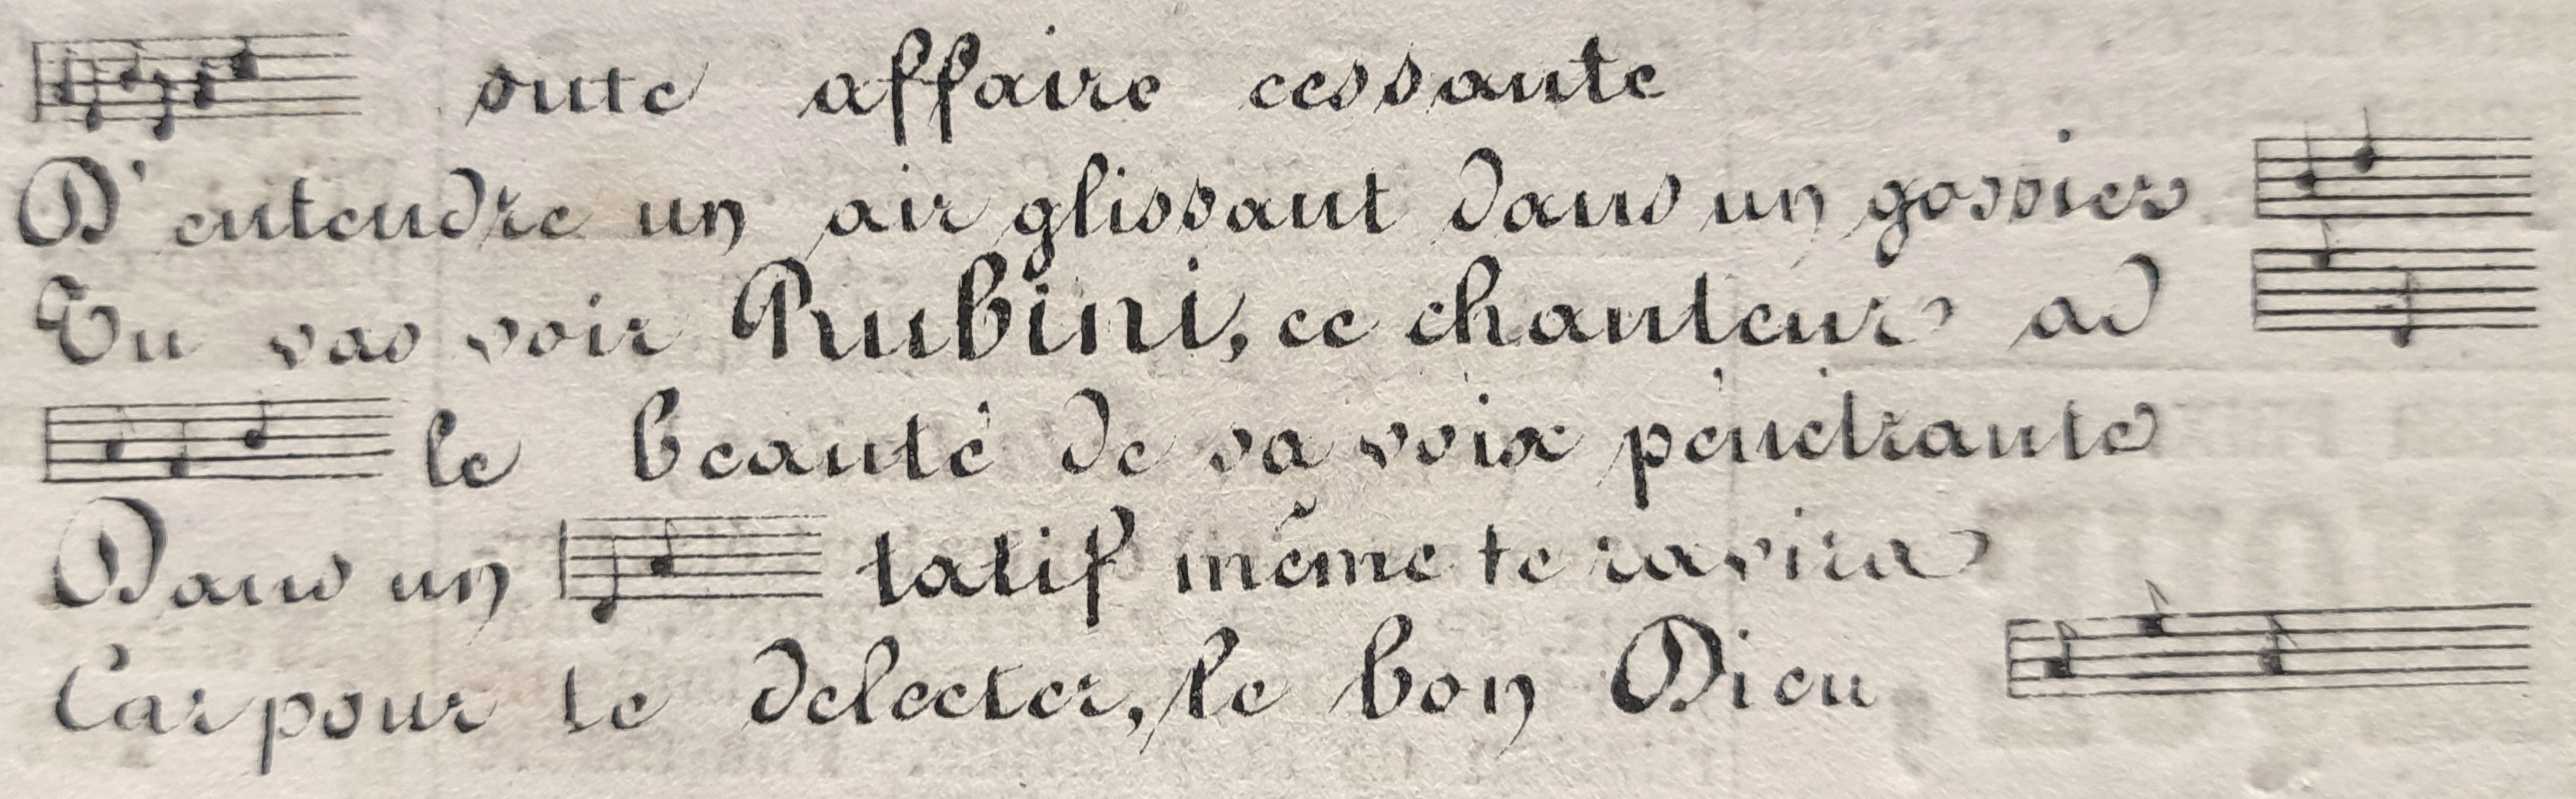 oute affaire cessante
D'entendre un air glissant dans un gossier
Tu vas voir Rubini, ce chanteur ad
le beauté de sa voix pénétrante
Dans un tatif même te ravira
Car pour te delecter, le bon Dieu